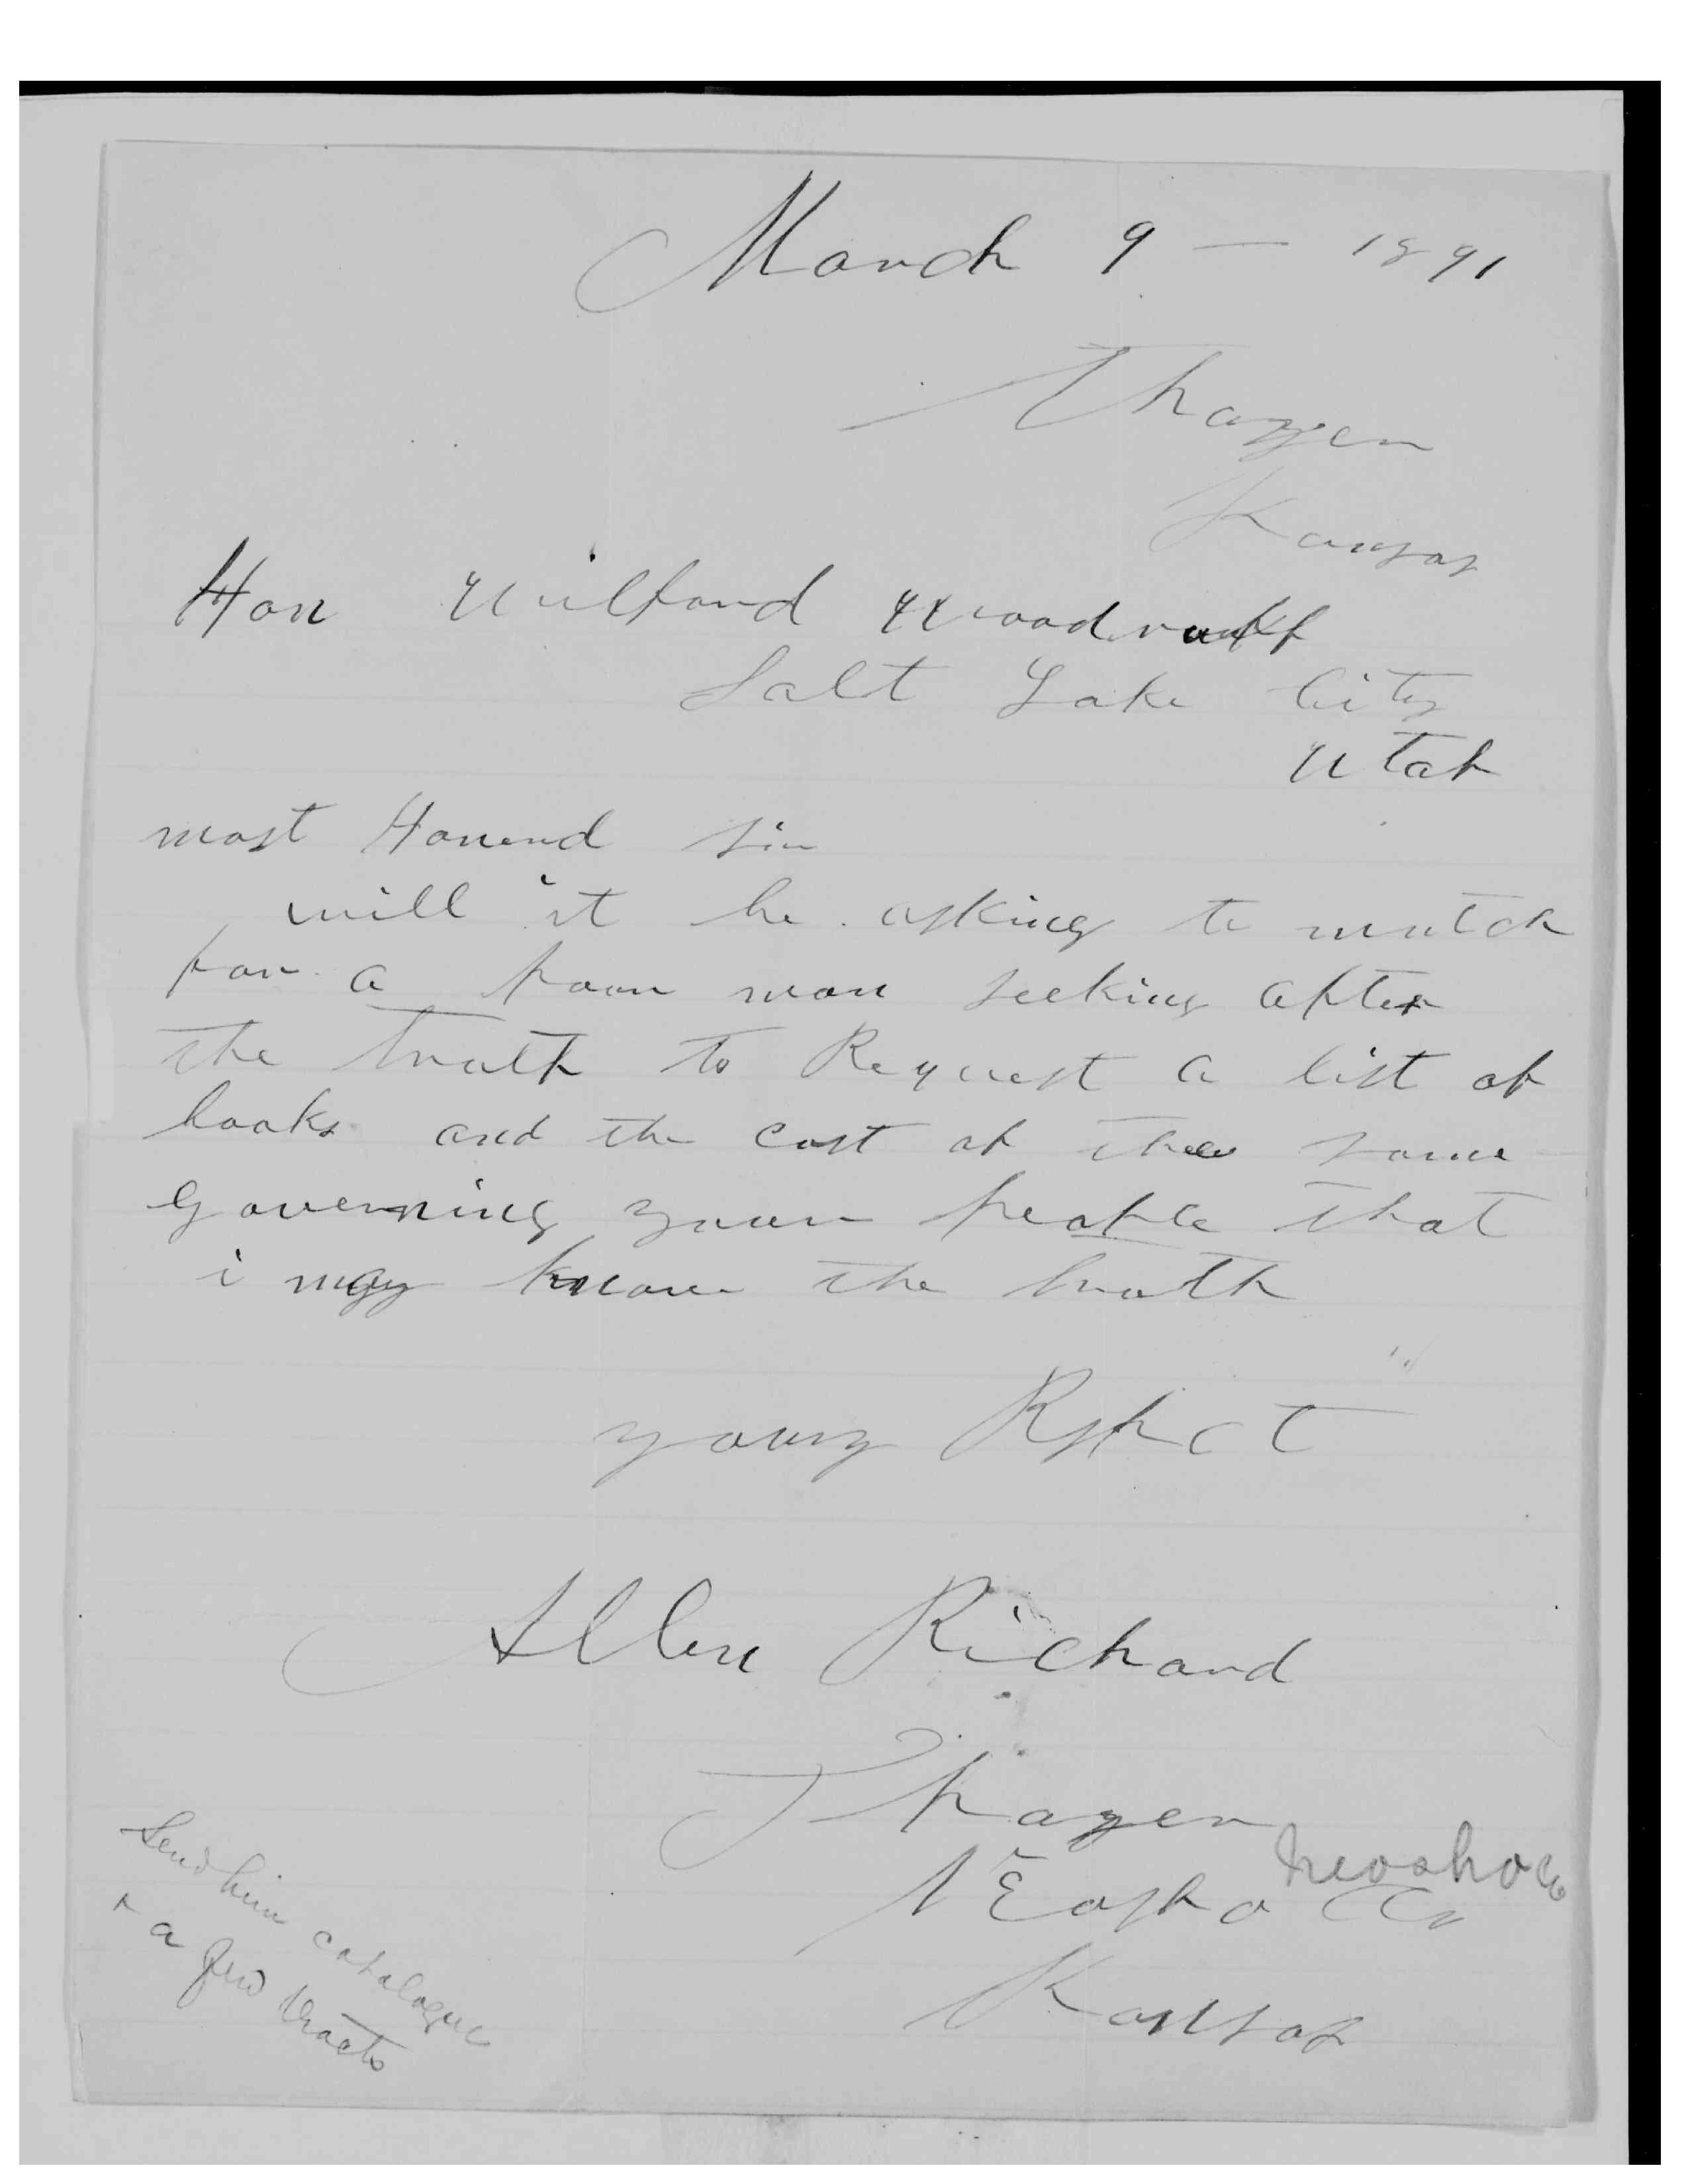 March 9 — 1891
Thayer
Kansas
Hon Wilford Woodruff
Salt Lake City
Utah
most Honerd sir
will it be asking to mutch
for a poor man seeking after
the truth to Request a list of
books and the cost of the same
governing your people that
i may know the truth
yours Rspct
Allen Richard
Thayer
NEosho Co
neosho co
Kansas
Send him catalogue
+ a few tracts